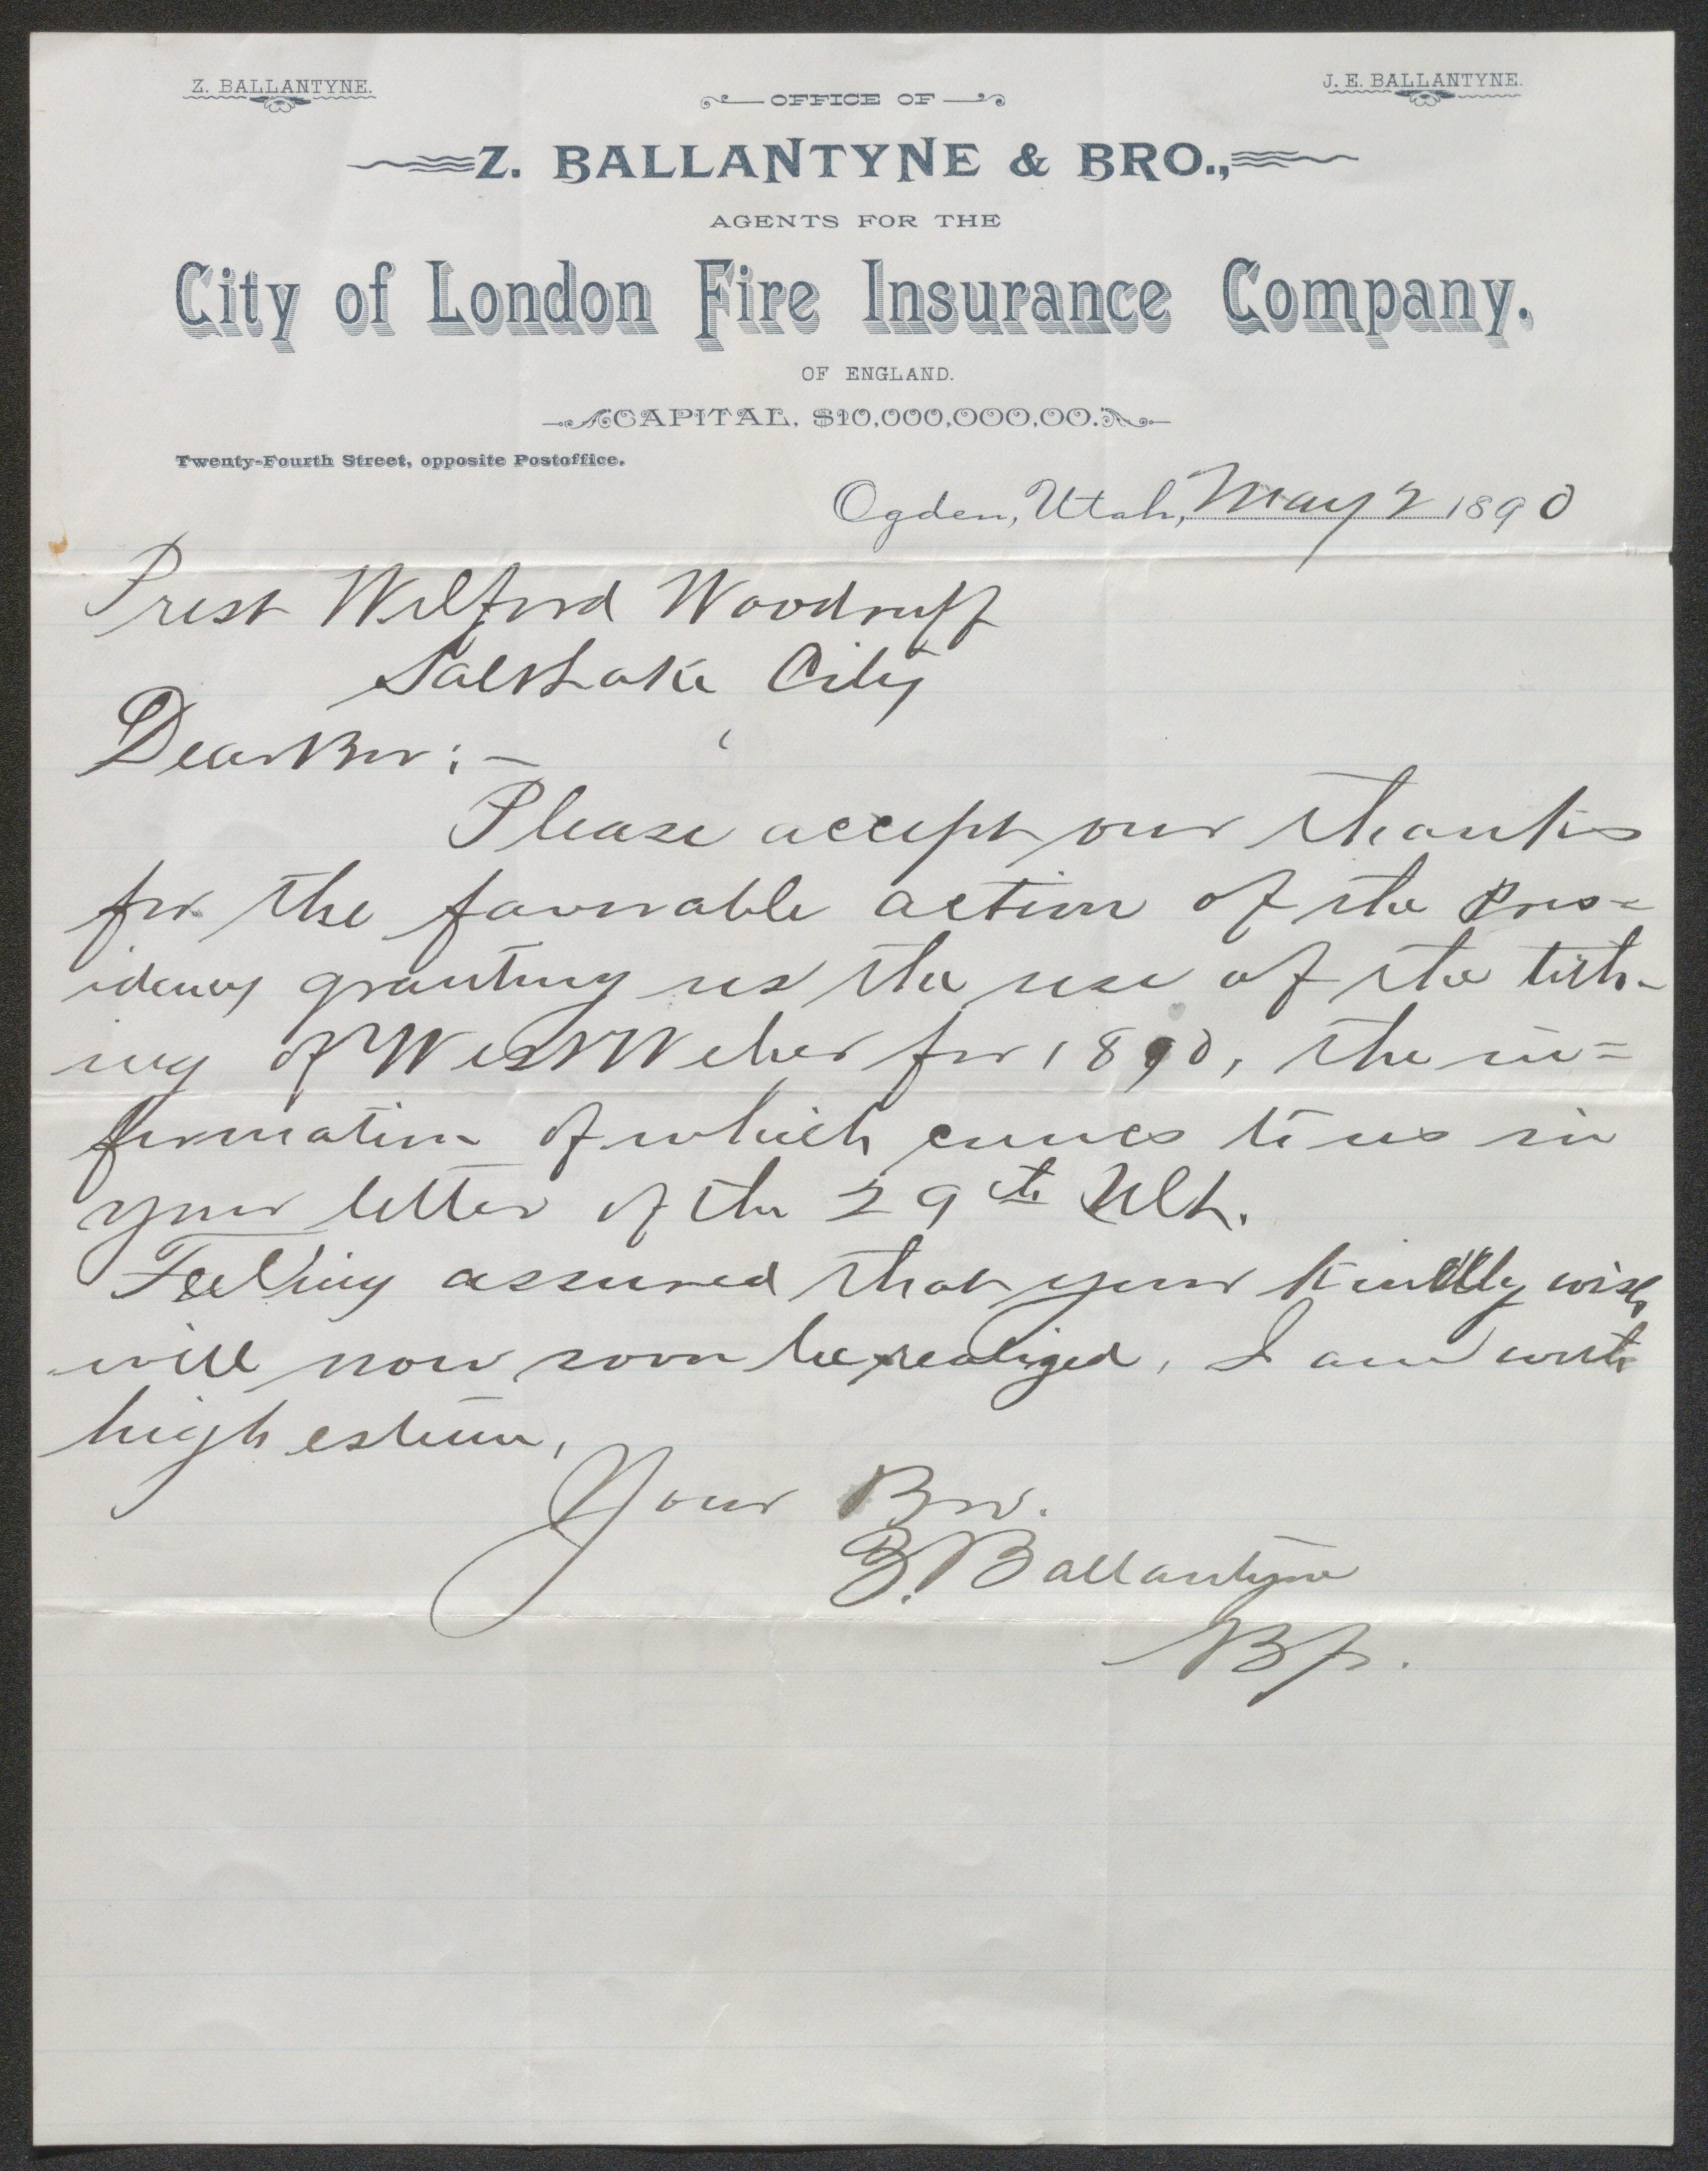 Z. BALLANTYNE.
J. E. BALLANTYNE.
OFFICE OF
Z. BALLANTYNE & BRO.,
AGENTS FOR THE
City of London Fire Insurance Company.
OF ENGLAND.
CAPITAL, $10,000,000,00.
Twenty-Fourth Street, opposite Postoffice.
Ogden, Utah, May 2 1890
Prest Wilford Woodruff
Salt Lake City
Dear Bro: -
Please accept our thanks
for the favorable action of the Pres=
idency granting us the use of the tith-
ing of West Weber for 1890, the in=
formation of which comes to us in
your letter of the 29th Ult.
Feeling assured that your kindly wish
will now soon be realized, I am with
high esteem,
Your Bro.
Z. Ballantyne
Bp.